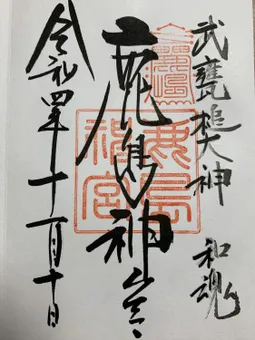 武甕槌大神 和魂
鹿島神宮
鹿島神宮
令和四年十一月十日